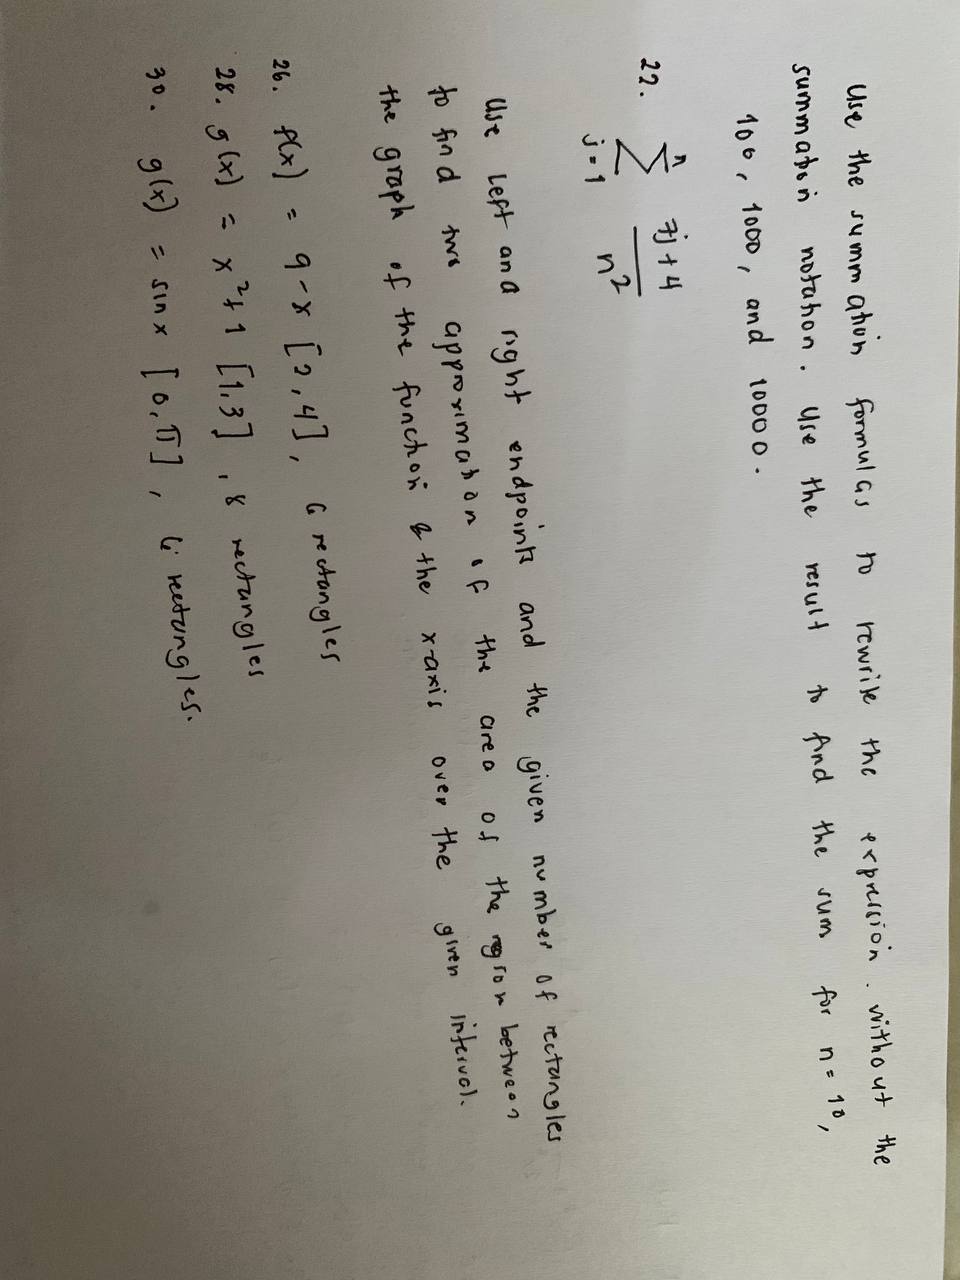 Use the summation formulas to rewrite the expression. without the
summation notation. Use the result to find the sum for n = 10,
100, 1000, and 10000.
22. n∑j=1 7j+4/n²
Use left and right endpoints and the given number of rectangles
to find two approximation of the area of the region between
the graph of the function & the x-axis over the given interval.
26. f(x) = 9-x [2,4], 6 rectangles
28. g(x) = x²+1 [1,3], 8 rectangles
30. g(x) = sin x [0,π], 6 rectangles.